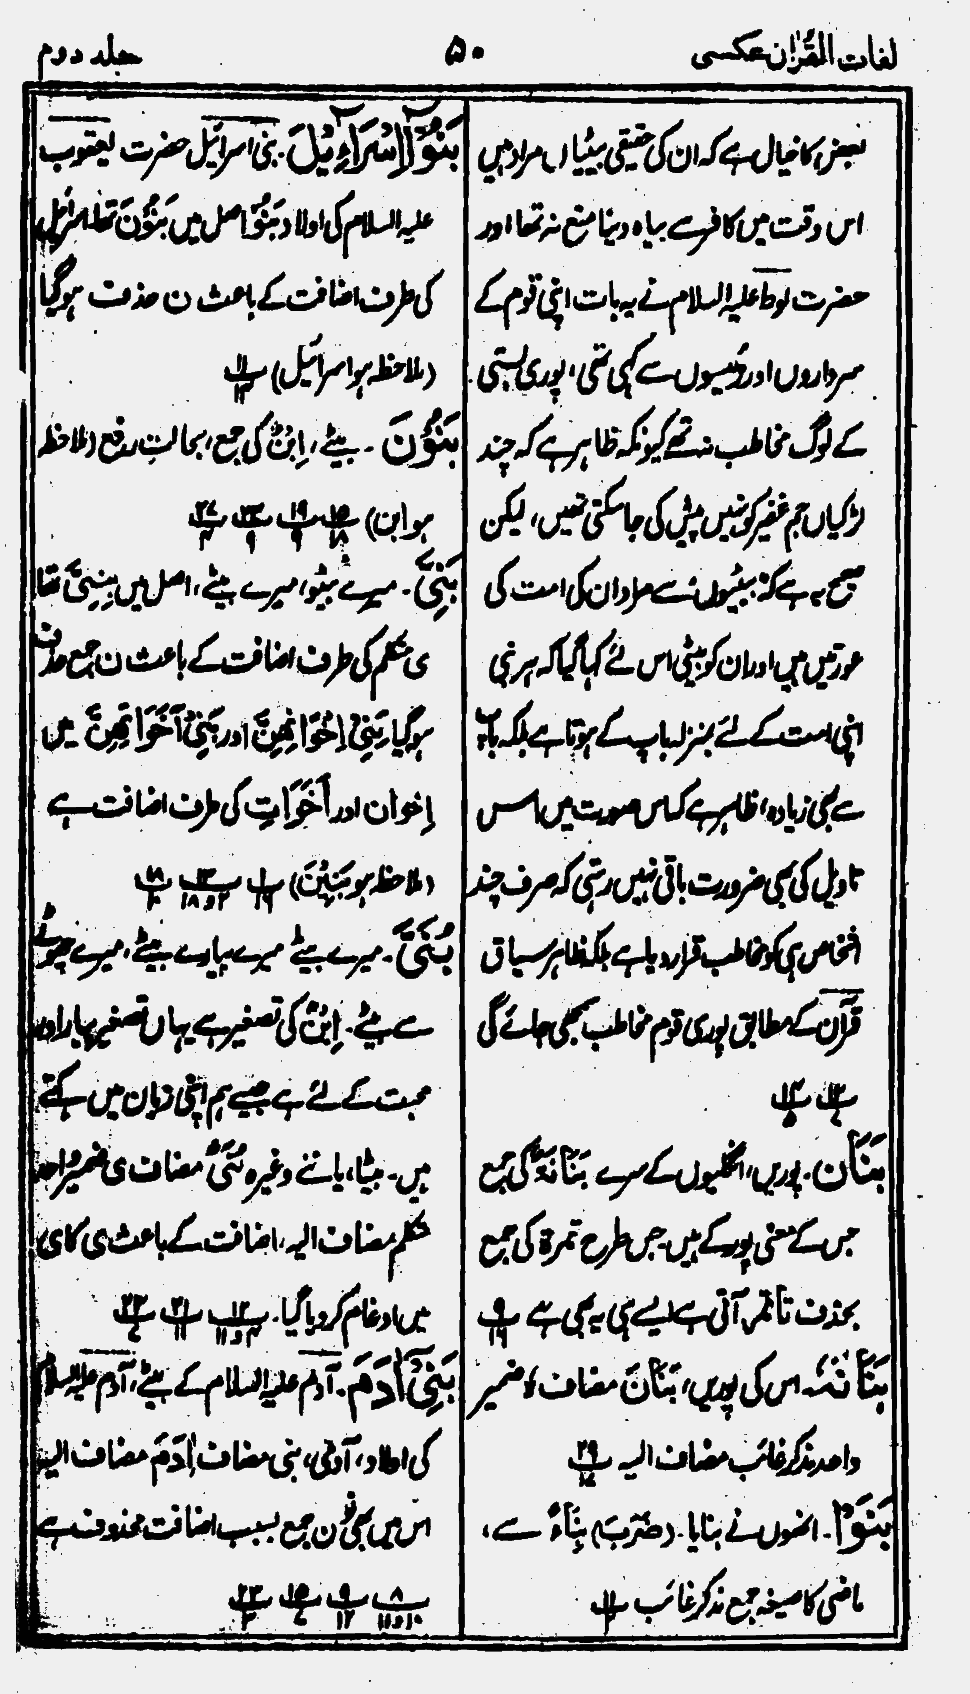 لغات القرآن عکسی
۵۰
جلد دوم
بعض کا خیال ہے کہ ان کی حقیقی بیٹیاں مراد ہیں
اس وقت میں کافر سے بیاہ دینا منع نہ تھا اور
حضرت لوط علیہ السلام نے یہ بات اپنی قوم کے
سرداروں اور رئیسوں سے کہی تھی، پوری بستی
کے لوگ مخاطب نہ تھے کیونکہ ظاہر ہے کہ چند
لڑکیاں جم غفیر کو نہیں پیش کی جا سکتی تھیں، لیکن
صحیح یہ ہے کہ بیٹیوں سے مراد ان کی امت کی
عورتیں ہیں اور ان کو بیٹی اس لئے کہا گیا کہ ہر نبی
اپنی امت کے لئے بمنزلہ باپ کے ہوتا ہے بلکہ باپ
سے بھی زیادہ، ظاہر ہے کہ اس صورت میں اس
تاویل کی بھی ضرورت باقی نہیں رہتی کہ صرف چند
اشخاص ہی کو مخاطب قرار دیا ہے بلکہ ظاہر سیاق
قرآن کے مطابق پوری قوم مخاطب سمجھی جائے گی
پ۱۲/۷ پ۱۴/۵
بَنَان۔ پوریں، انگلیوں کے سرے بَنَانَةٌ کی جمع
جس کے معنی پور کے ہیں۔ جس طرح تمرۃ کی جمع
بحذف تا تمر آتی ہے ایسے ہی یہ بھی ہے پ۹/۱۶
بَنَانَهٗ۔ اس کی پوریں، بَنَانَ مضاف ہٗ ضمیر
واحد مذکر غائب مضاف الیہ پ۲۹/۱۷
بَنَوْا۔ انھوں نے بنایا۔ (ضَرَبَ) بِنَاءٌ سے،
ماضی کا صیغہ جمع مذکر غائب پ۱۱
بَنُوْۤا اِسْرَآءِیْلَ۔ بنی اسرائیل حضرت یعقوب
علیہ السلام کی اولاد بَنُوْا اصل میں بَنُوْنَ تھا اسرائیل
کی طرف اضافت کے باعث ن حذف ہو گیا
(ملاحظہ ہو اسرائیل) پ۱۱/۱۴
بَنُوْنَ۔ بیٹے، اِبْنٌ کی جمع، بحالت رفع (ملاحظہ
ہو ابن) پ۱۵/۱۸ پ۱۹/۹ پ۲۳/۹ پ۲۷/۴
بَنِیَّ۔ میرے بیٹو، میرے بیٹے، اصل میں بَنِیْنَ تھا
ی متکلم کی طرف اضافت کے باعث ن جمع حذف
ہو گیا بَنِیْ اِخْوَانِهِنَّ اور بَنِیْ اَخَوَاتِهِنَّ میں
اِخوان اور اَخَوَاتِ کی طرف اضافت ہے
(ملاحظہ ہو بَنِیْنَ) پ۱/۱۶ پ۱۳/۲ و ۱۸ پ۱۸/۱۰
بُنَیَّ۔ میرے بیٹے میرے پیارے بیٹے، میرے چھوٹے
سے بیٹے۔ اِبْنٌ کی تصغیر ہے یہاں تصغیر پیار اور
محبت کے لئے ہے جیسے ہم اپنی زبان میں کہتے
ہیں۔ بیٹا، یا ننے وغیرہ بُنَیَّ مضاف ی ضمیر واحد
متکلم مضاف الیہ، اضافت کے باعث ی کا ی
میں ادغام کر دیا گیا۔ پ۱۲/۴ و ۱۱ پ۲۱/۱۱ پ۲۳/۷
بَنِیْۤ اٰدَمَ۔ آدم علیہ السلام کے بیٹے، آدم علیہ السلام
کی اولاد، آدمی، بنی مضاف اٰدَمَ مضاف الیہ
اس میں بھی نون جمع بسبب اضافت محذوف ہے
پ۸/۱۰ و ۱۱ پ۹/۱۲ پ۱۵/۷ پ۲۳/۳